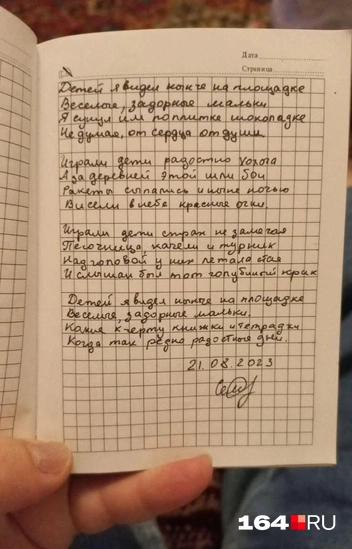 Дата
Страница
Детей я видел нынче на площадке
Веселые, задорные мальки
Я сунул им по плитке шоколадке
Не думая, от сердца от души.
Играли дети радостно хохоча
А за деревней этой шли бои
Ракеты сыпались и ночью
Висели в небе красные огни.
Играли дети страх не замечая
Песочница, качели и турник
Над головой у них летала стая
И слышан был тот голубиный крик
Детей я видел нынче на площадке
Веселые, задорные мальки.
Какие к черту книжки и тетрадки
Когда так редко радостные дни.
21.08.2023
164 RU